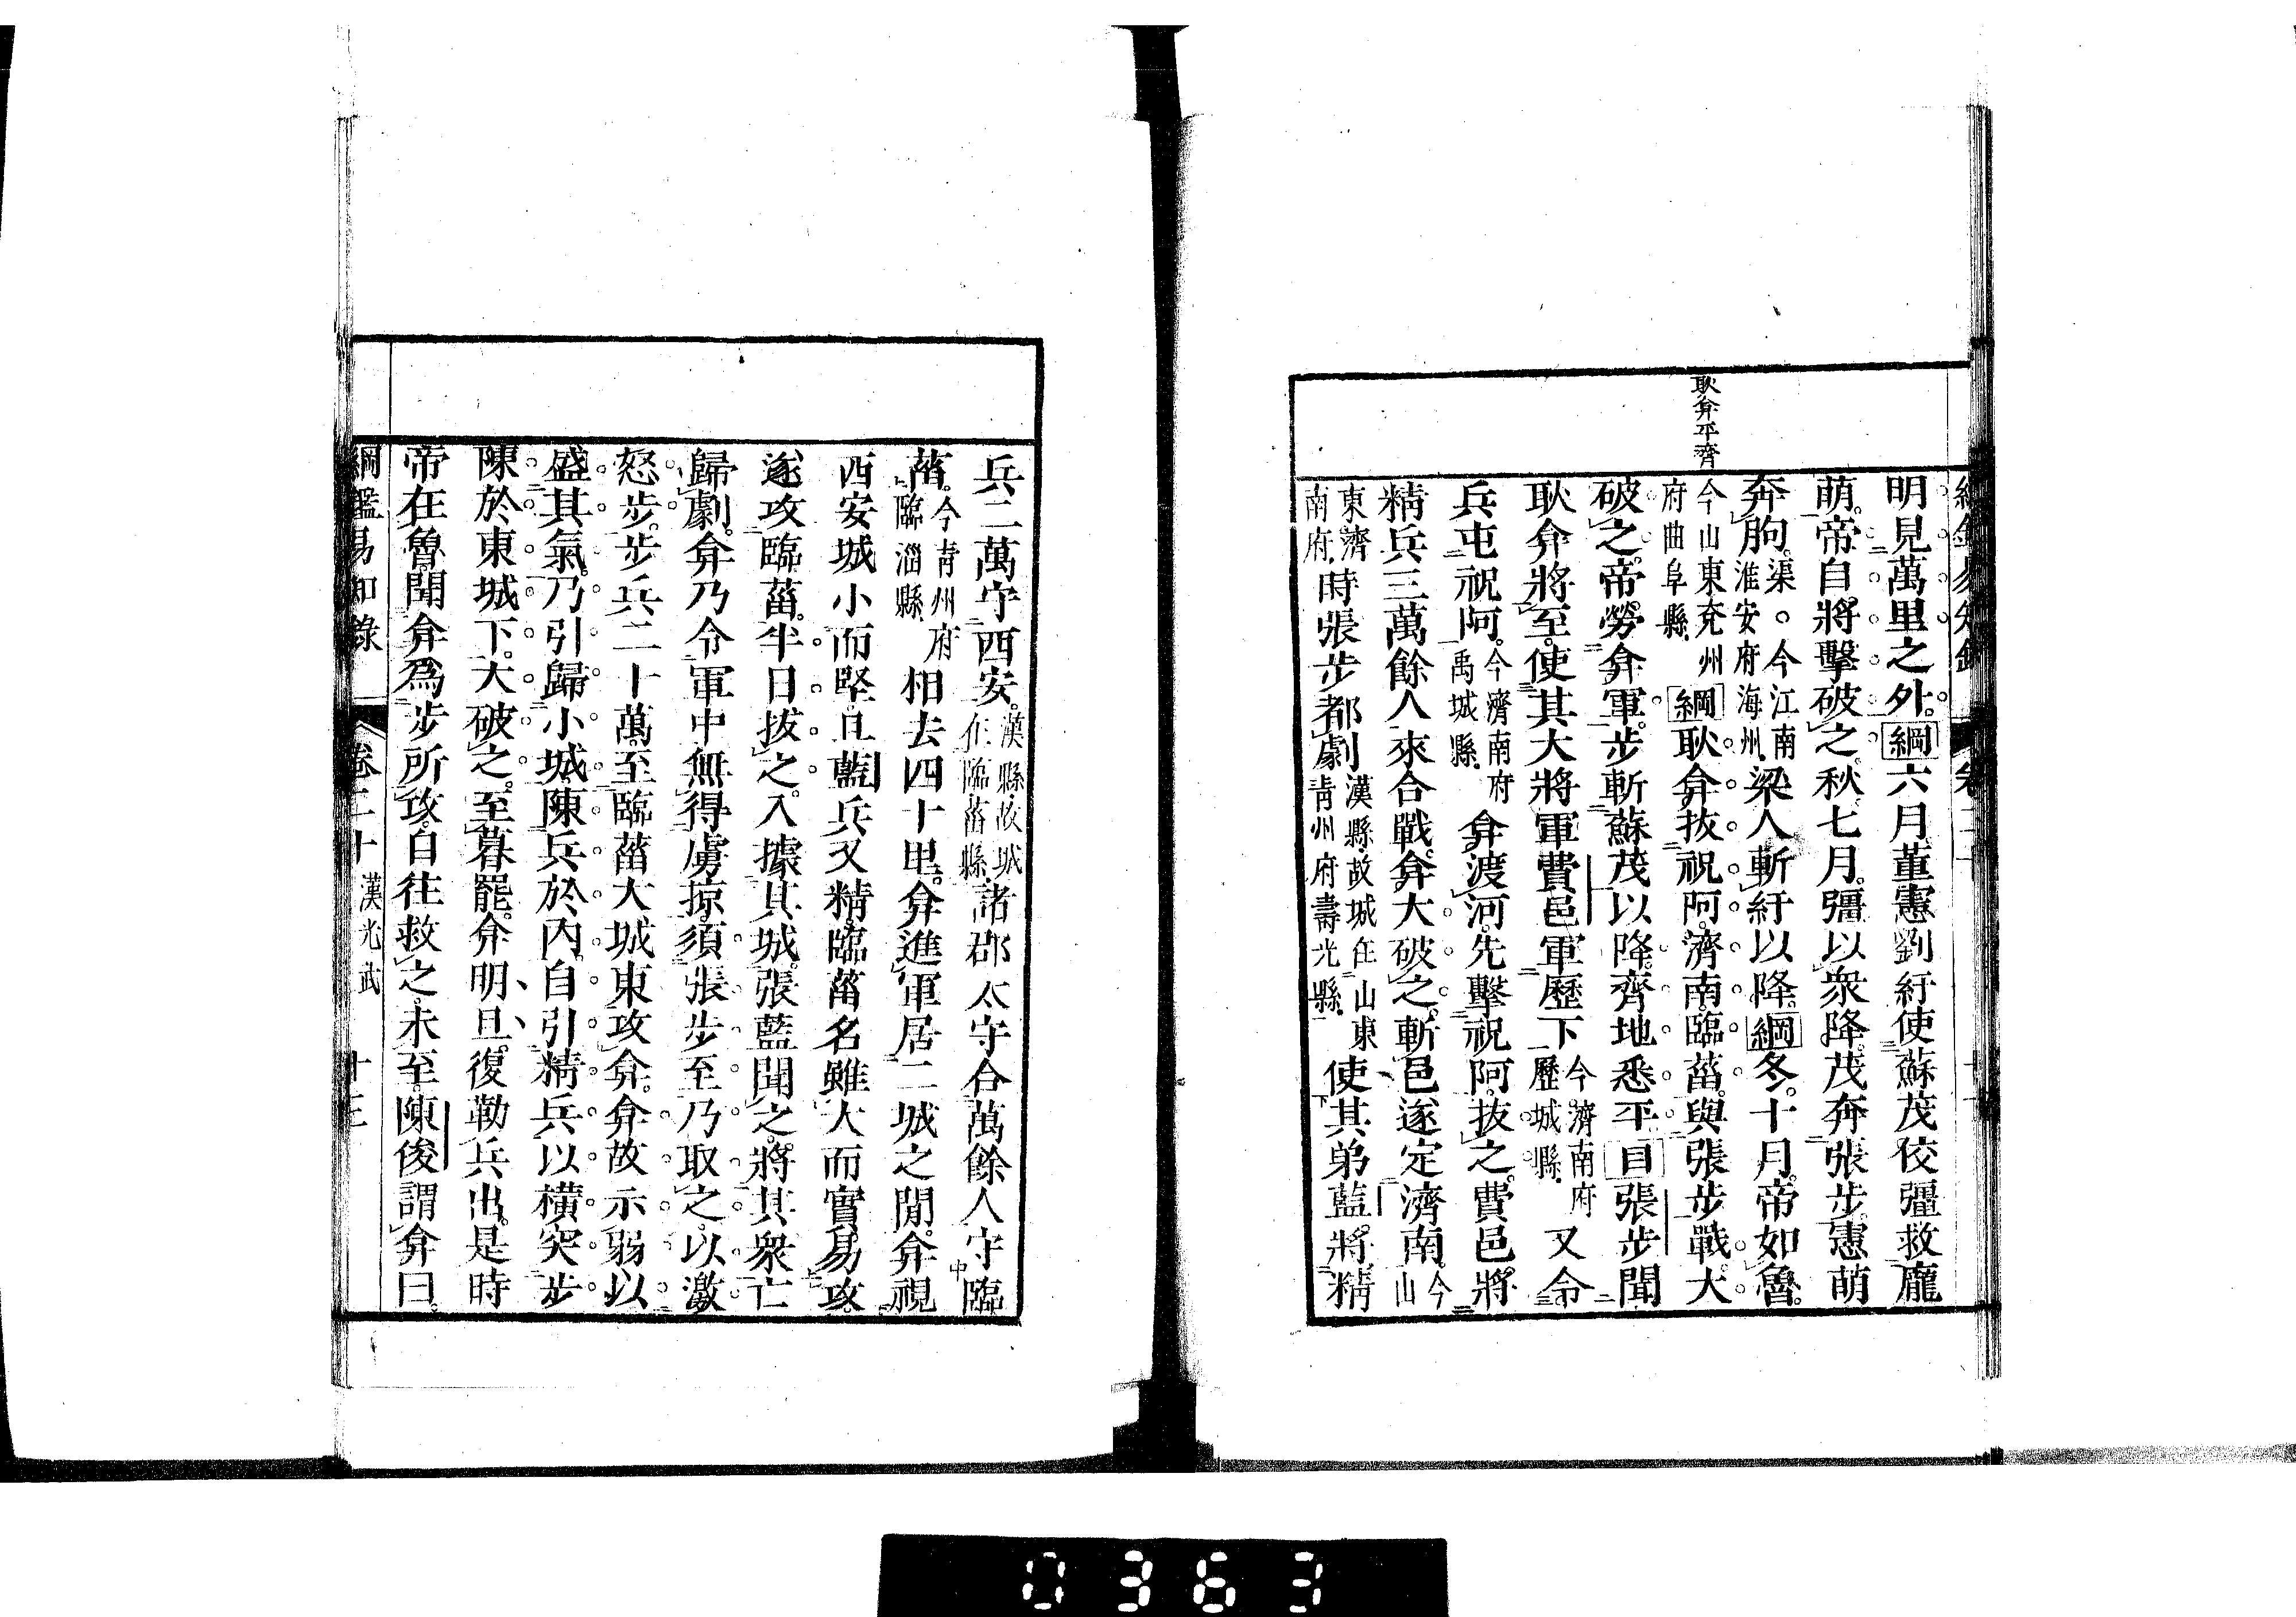 耿弇平齊
明見萬里之外。綱六月董憲劉紆使蘇茂佼彊救龐
萌。帝自將擊破之。秋七月。彊以衆降。茂奔張步。憲萌
奔朐。渠。今江南淮安府海州。梁人斬紆以降。綱冬。十月。帝如魯。
今山東兖州府曲阜縣。綱耿弇拔祝阿。濟南。臨菑。與張步戰。大
破之。帝勞弇軍。步斬蘇茂以降。齊地悉平目張步聞
耿弇將至。使其大將軍費邑軍歷下今濟南府歷城縣。又令
兵屯祝阿。今濟南府禹城縣。弇渡河。先擊祝阿。拔之。費邑。將
精兵三萬餘人來合戰。弇大破之。斬邑遂定濟南。今山
東濟南府。時張步都劇漢縣。故城在山東青州府壽光縣。使其弟藍將精
兵二萬守西安。漢縣。故城在臨菑縣諸郡太守合萬餘人守臨
菑。今青州府臨淄縣。相去四十里。弇進軍居二城之閒。弇視
西安城小而堅。且藍兵又精。臨菑名雖大而實易攻。
遂攻臨菑。半日拔之。入據其城。張藍聞之。將其衆亡
歸劇。弇乃令軍中無得虜掠。須張步至乃取之。以激
怒步。步兵二十萬。至臨菑大城東攻弇。弇故示弱以
盛其氣。乃引歸小城。陳兵於內。自引精兵以橫突步
陳於東城下。大破之。至暮罷。弇明旦。復勒兵出。是時
帝在魯。聞弇爲步所攻。自往救之。未至。陳俊謂弇曰。
綱鑑易知錄 卷二十 漢光武 十三
0363